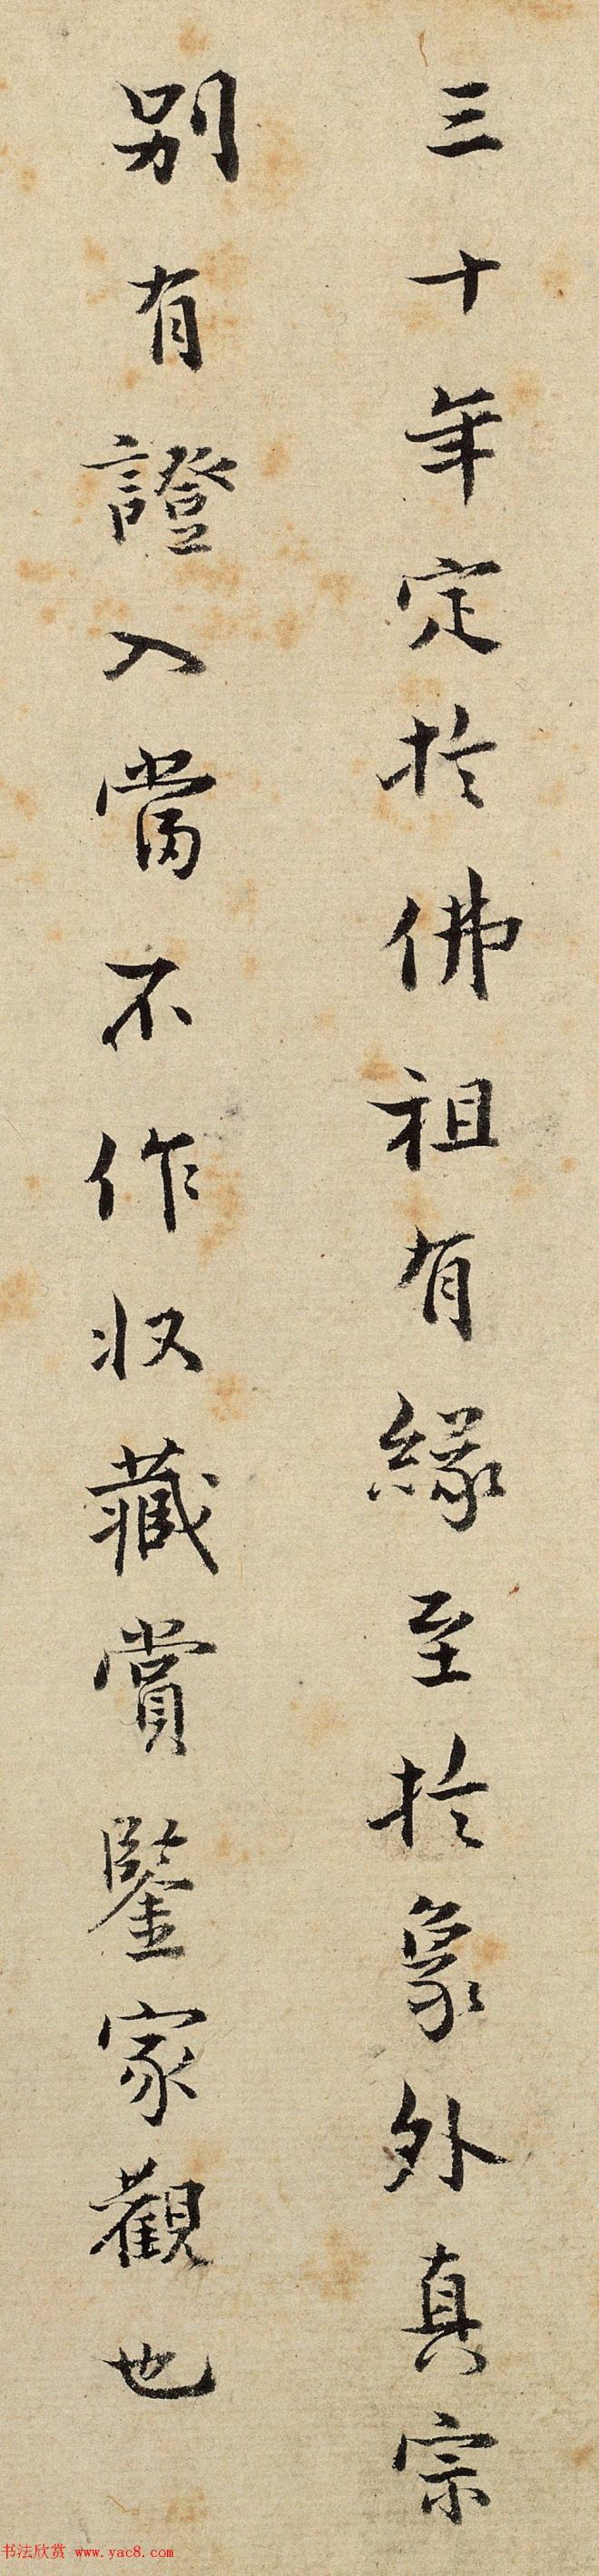 三十年定於佛祖有緣至於象外真宗
別有證入當不作收藏賞鑒家觀也
书法欣赏 www.yac8.com